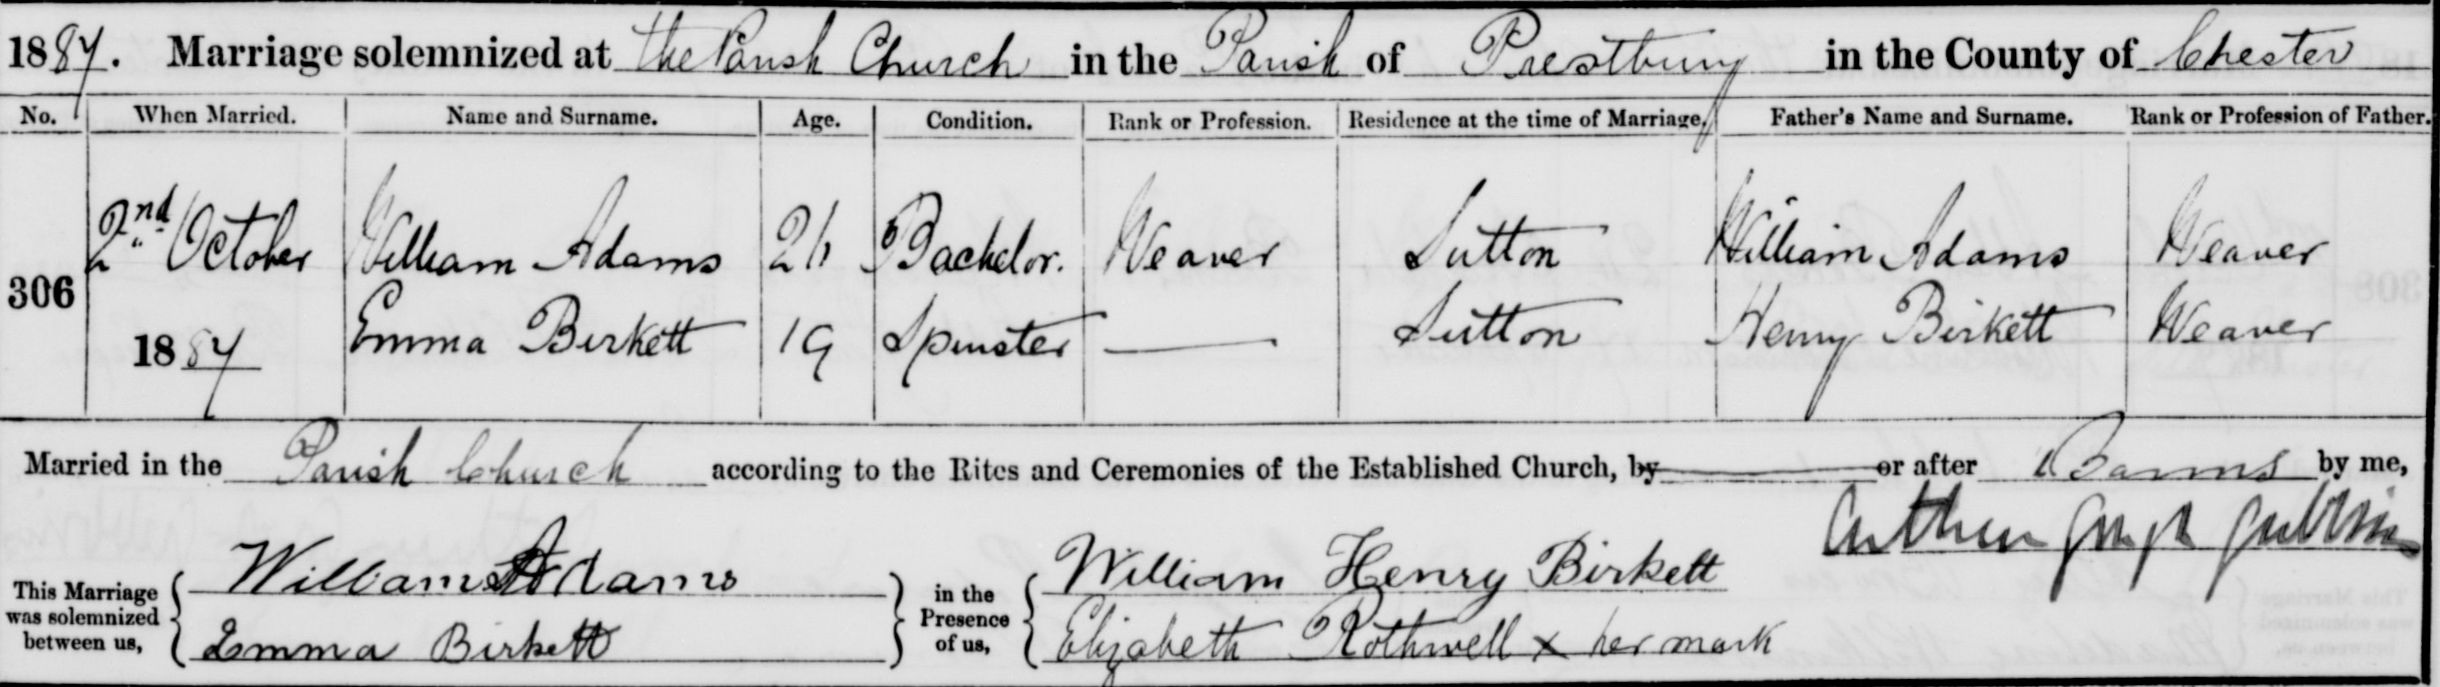 1887. Marriage solemnized at the Parish Church in the Parish of Prestbury in the County of Chester
No. When Married. Name and Surname. Age. Condition. Rank or Profession. Residence at the time of Marriage. Father's Name and Surname. Rank or Profession of Father.
306 2nd October William Adams Bachelor. Weaver Sutton William Adams Weaver
1887 Emma Birkett 19 Spinster — Sutton Henry Birkett Weaver
Married in the Parish Church according to the Rites and Ceremonies of the Established Church, by or after Banns by me,
Arthur
This Marriage was solemnized between us, William Adams in the Presence of us, William Henry Birkett
Emma Birkett Elizabeth Rothwell x her mark